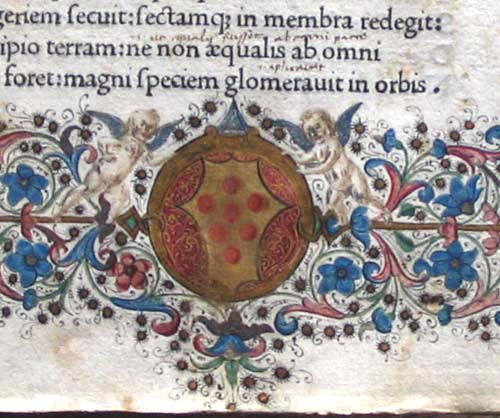 geriem ſecuit:ſectamqꝫ in membra redegit:
ipio terram:ne non æqualis ab omni
foret:magni ſpeciem glomerauit in orbis .